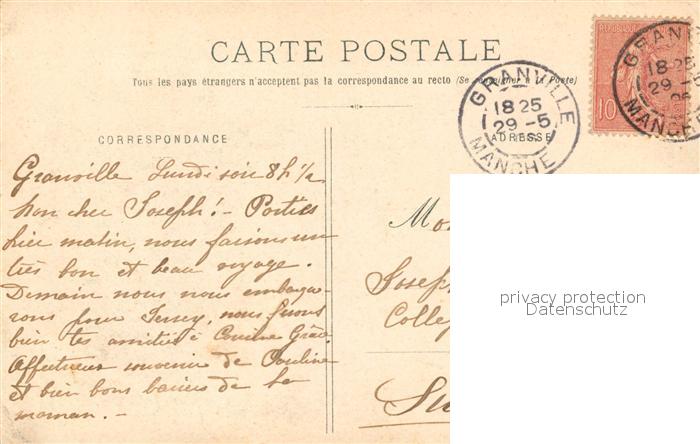 CARTE POSTALE
Tous les pays étrangers n'acceptent pas la correspondance au recto (Se renseigner à la Poste)
GRANVILLE
18 25
29 -5
MANCHE
GRANV
18 25
29 -5
06
MANCHE
10
CORRESPONDANCE
ADRESSE
Granville Lundi soir 8h ½
Mon cher Joseph! - Parties
hier matin, nous faisons un
très bon et beau voyage.
Demain nous nous embarque-
rons pour Jersey, nous ferons
bien tes amitiés à Cousine
Affectueux souvenir de Pauline
et bien bons baisers de ta
maman. -
Mo
Joseph
Colle
Su
privacy protection
Datenschutz